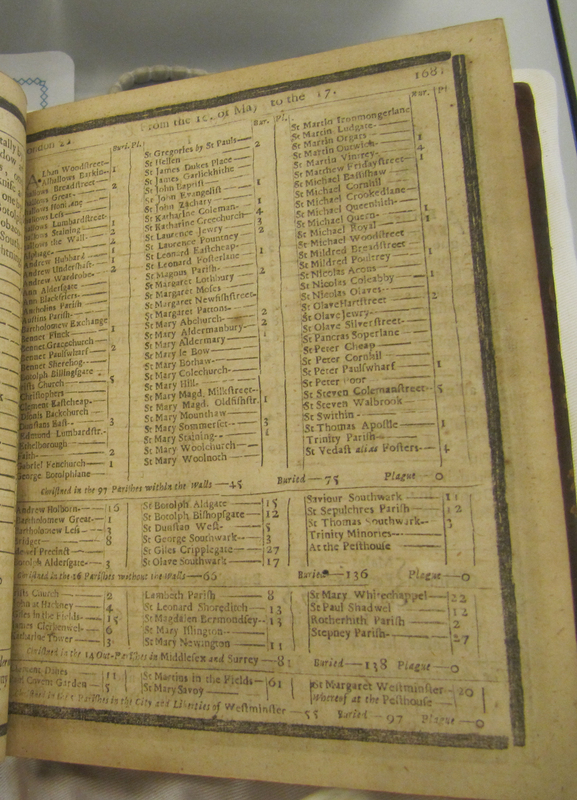 ondon 22
From the 10. of May to the 17.
168
Buri. Pl.
lhan Woodstreet
Alhallows Barkin 1
hallows Breadstreet 2
allows Great
allows Lumbardstreet 1
allows Staining 2
allows the Wall
Alphage 1
Andrew Hubbard 1
Andrew Undershaft 2
Andrew Wardrobe
Ann Aldersgate
Ann Blackfriers
Antholins Parish
Austins Parish
Bartholomew Exchange
Bennet Finck 1
Bennet Gracechurch
Bennet Paulswharf 2
Bennet Sherehog
Botolph Billingsgate
Christs Church 5
Christophers
Clement Eastcheap
Dionis Backchurch
Dunstans East 3
Edmund Lumbardstr.
Ethelborough
Faith 2
Gabriel Fenchurch 1
George Botolphlane
Bur. Pl.
St Gregories by St Pauls 2
St Hellen
St James Dukes Place
St James Garlickhithe
St John Baptist
St John Evangelist
St John Zachary 1
St Katharine Coleman 4
St Katharine Creechurch 3
St Laurence Jewry 2
St Laurence Pountney
St Leonard Eastcheap
St Leonard Fosterlane 1
St Magnus Parish
St Margaret Lothbury 2
St Margaret Moses
St Margaret Newfishstreet
St Margaret Pattons
St Mary Abchurch 2
St Mary Aldermanbury 2
St Mary Aldermary
St Mary le Bow
St Mary Bothaw
St Mary Colechurch
St Mary Hill
St Mary Magd. Milkstreet
St Mary Magd. Oldfishstr. 1
St Mary Mounthaw
St Mary Sommerset 3
St Mary Staining
St Mary Woolchurch
St Mary Woolnoth
Bur. Pl
St Martin Ironmongerlane
St Martin Ludgate
St Martin Orgars 1
St Martin Outwich 4
St Martin Vintrey 1
St Matthew Fridaystreet
St Michael Bassishaw
St Michael Cornhil
St Michael Crookedlane
St Michael Queenhith 1
St Michael Quern
St Michael Royal
St Michael Woodstreet
St Mildred Breadstreet
St Mildred Poultrey
St Nicolas Acons
St Nicolas Coleabby
St Nicolas Olaves
St Olave Hartstreet
St Olave Jewry
St Olave Silverstreet
St Pancras Soperlane
St Peter Cheap
St Peter Cornhil
St Peter Paulswharf 1
St Peter Poor
St Steven Colemanstreet 5
St Steven Walbrook
St Swithin
St Thomas Apostle 1
Trinity Parish
St Vedast alias Fosters 4
Christned in the 97 Parishes within the Walls 45 Buried 75 Plague 0
Andrew Holborn 16
Bartholomew Great 1
Bartholomew Less 3
Bridget 8
Bridewel Precinct
Botolph Aldersgate 3
St Botolph Aldgate 15
St Botolph Bishopsgate 12
St Dunstan West 5
St George Southwark 3
St Giles Cripplegate 27
St Olave Southwark 17
Saviour Southwark 11
St Sepulchres Parish 12
St Thomas Southwark 3
Trinity Minories
At the Pesthouse
Christned in the 16 Parishes without the Walls 66 Buried 136 Plague 0
Christs Church 2
John at Hackney 4
Giles in the Fields 15
James Clerkenwel 6
Katharine Tower 3
Lambeth Parish 8
St Leonard Shoreditch 13
St Magdalen Bermondsey 13
St Mary Islington
St Mary Newington 11
St Mary Whitechappel 22
St Paul Shadwel 12
Rotherhith Parish 2
Stepney Parish 27
Christned in the 14 Out-Parishes in Middlesex and Surrey 8 Buried 138 Plague 0
Clement Danes 11
Paul Covent Garden 5
St Martins in the Fields 61
St Mary Savoy
St Margaret Westminster 20
Whereof at the Pesthouse
Parishes in the City and Liberties of Westminster 55 Buried 97 Plague 0